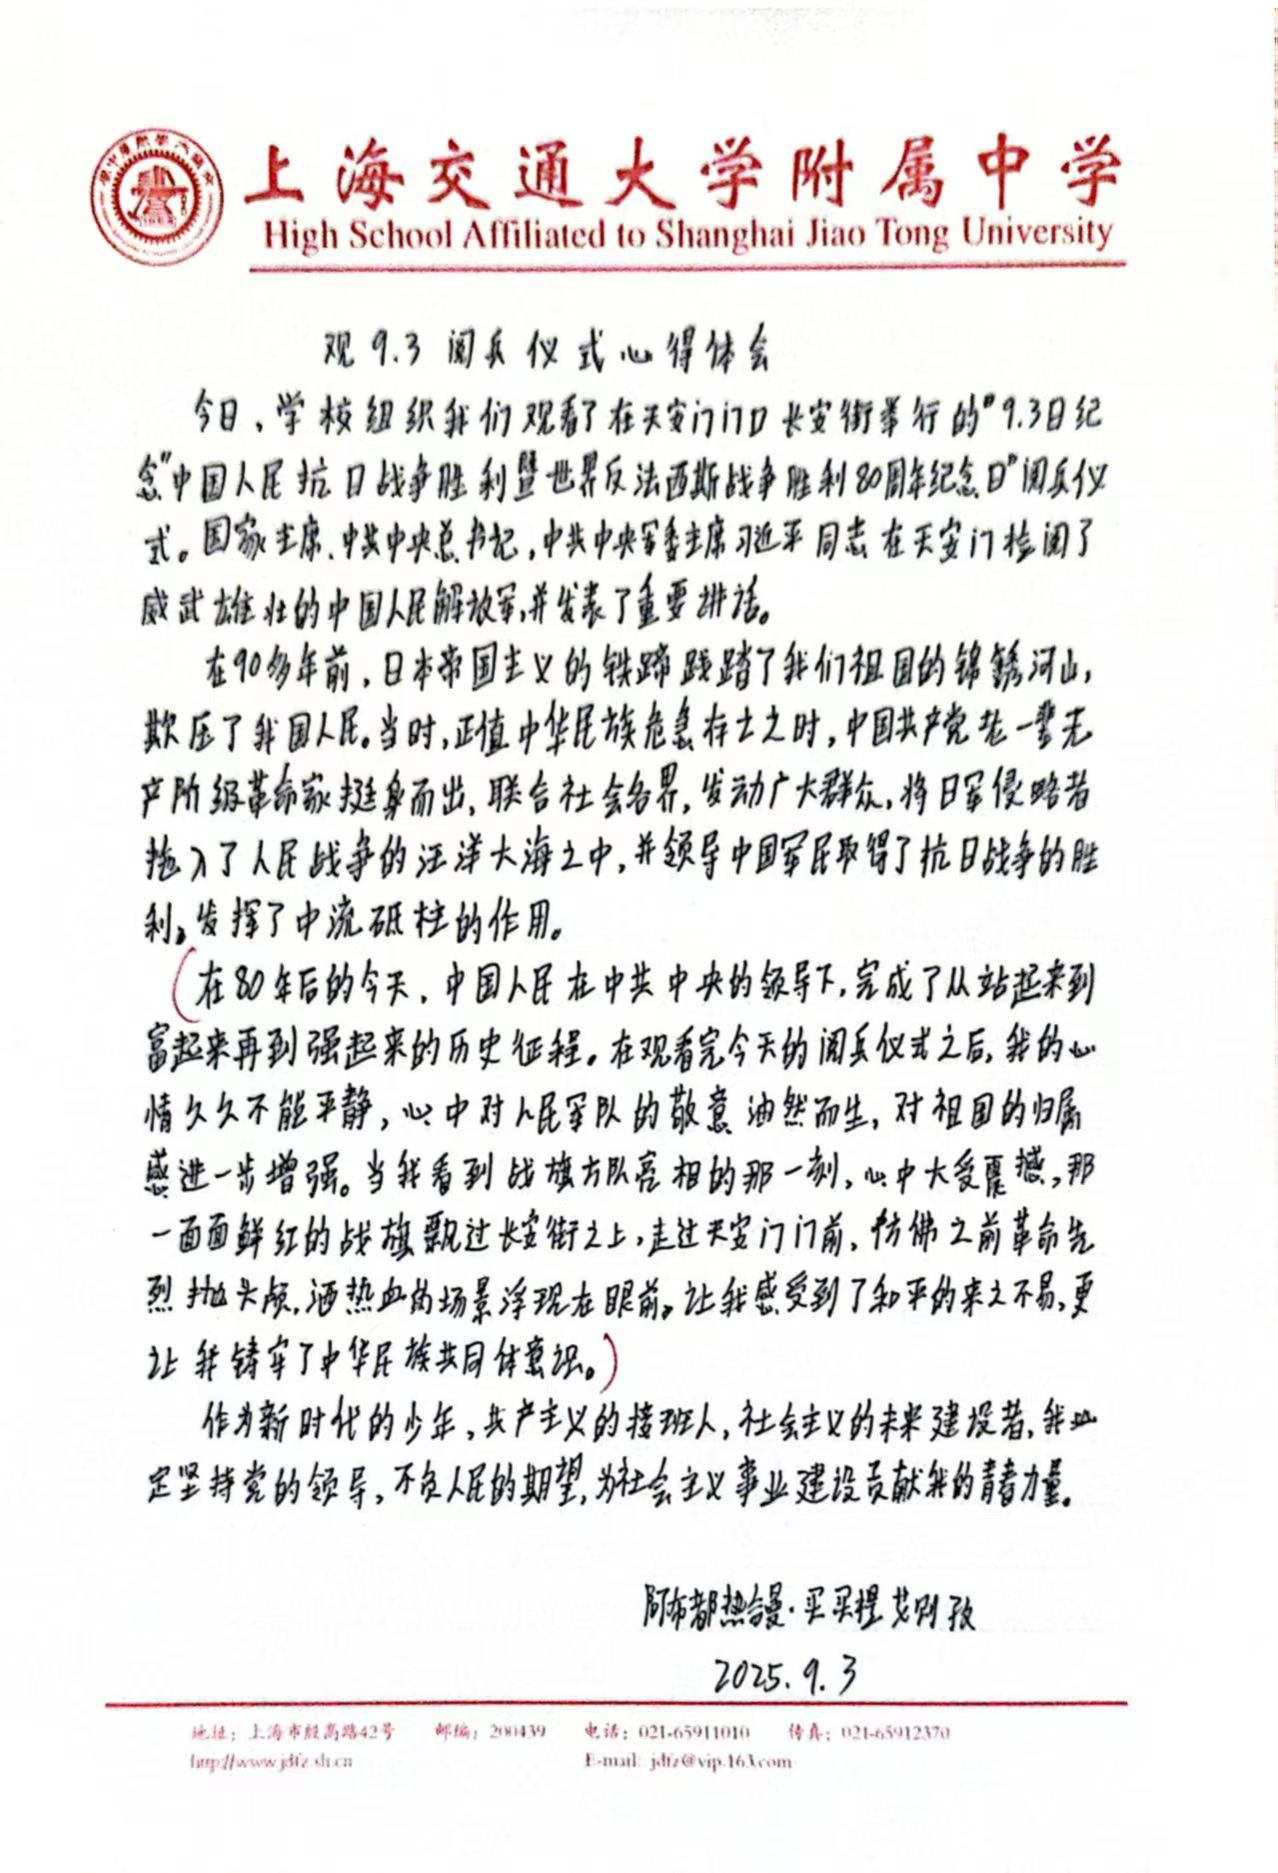 上海交通大学附属中学
High School Affiliated to Shanghai Jiao Tong University
观9.3阅兵仪式心得体会
今日，学校组织我们观看了在天安门门口长安街举行的“9.3日纪
念”中国人民抗日战争胜利暨世界反法西斯战争胜利80周年纪念日”阅兵仪
式。国家主席、中共中央总书记，中共中央军委主席习近平同志在天安门检阅了
威武雄壮的中国人民解放军，并发表了重要讲话。
在90多年前，日本帝国主义的铁蹄践踏了我们祖国的锦锈河山，
欺压了我国人民。当时，正值中华民族危急存亡之时，中国共产党老一辈无
产阶级革命家挺身而出，联合社会各界，发动广大群众，将日军侵略者
拖入了人民战争的汪洋大海之中，并领导中国军民取得了抗日战争的胜
利，发挥了中流砥柱的作用。
(在80年后的今天，中国人民在中共中央的领导下，完成了从站起来到
富起来再到强起来的历史征程。在观看完今天的阅兵仪式之后，我的心
情久久不能平静，心中对人民军队的敬意油然而生，对祖国的归属
感进一步增强。当我看到战旗方队亮相的那一刻，心中大受震撼，那
一面面鲜红的战旗飘过长安街之上，走过天安门门前，仿佛之前革命先
烈抛头颅，洒热血的场景浮现在眼前，让我感受到了和平的来之不易，更
让我铸牢了中华民族共同体意识。)
作为新时代的少年，共产主义的接班人，社会主义的未来建设者，我必
定坚持党的领导，不负人民的期望，为社会主义事业建设贡献我的青春力量。
阿布都热合曼·买买提艾则孜
2025.9.3
地址：上海市殷高路42号 邮编：200439 电话：021-65911010 传真：021-65912370
http://www.jdfz.sh.cn E-mail: jdfz@vip.163.com